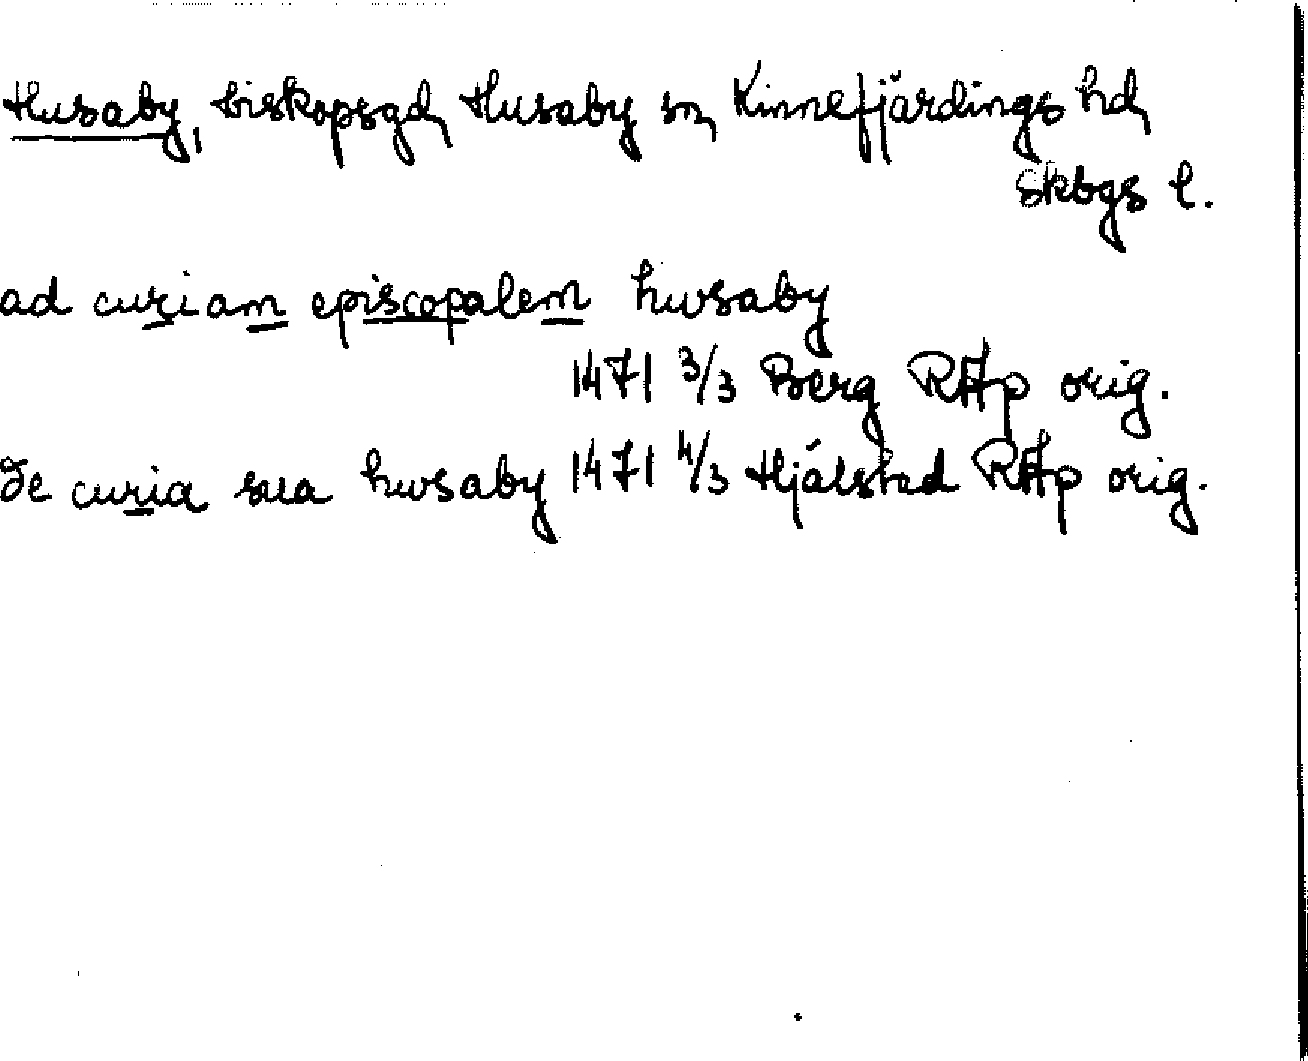 Husaby, biskopsgd, Husaby sn, Kinnefjärdings hd,
Skbgs l.
ad curiam episcopalem hwsaby
1471 3/3 Berg RAp orig.
De curia sua hwsaby 1471 4/3 Hjälstad RAp orig.